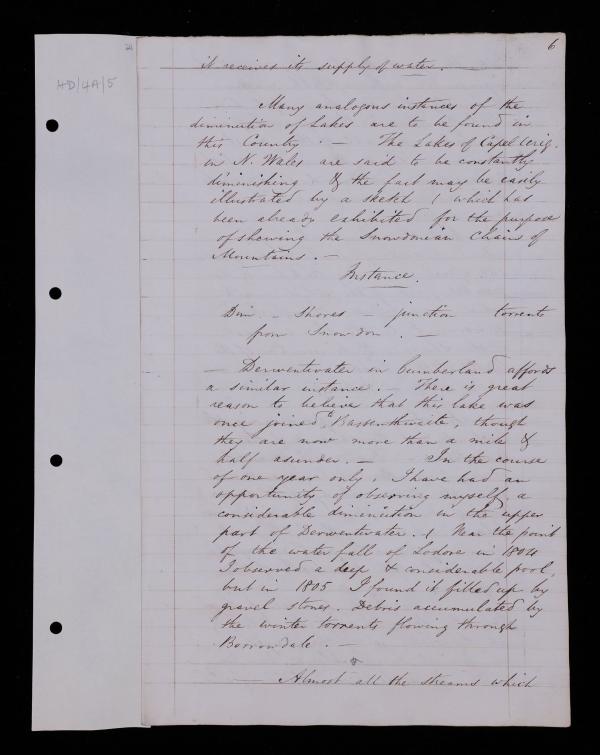 HD/4A/5
6
it receives its supply of water.
Many analogous instances of the
diminution of Lakes are to be found in
this Country. — The Lakes of Capel Cerig.
in N. Wales are said to be constantly
diminishing. & the fact may be easily
illustrated by a sketch (which has
been already exhibited for the purpose
of shewing the Snowdonian Chain of
Mountains. —
Instance.
Dim – Shores – junction torrents
from Snowdon. —
— Derwentwater in Cumberland affords
a similar instance. — There is great
reason to believe that this lake was
once joined to Bassenthwaite, though
they are now more than a mile &
half asunder. — In the course
of one year only, I have had an
opportunity of observing myself, a
considerable diminution in the upper
part of Derwentwater. ( Near the point
of the water fall of Lodore in 1804
I observed a deep & considerable pool,
but in 1805 I found it filled up by
gravel stones. Debris accumulated by
the winter torrents flowing through
Borrowdale. —
Almost all the streams which